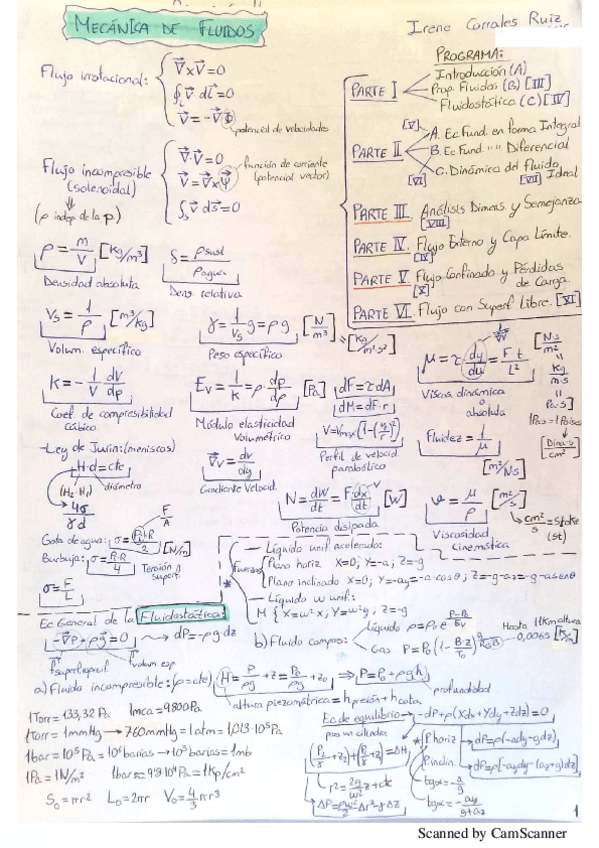 MECÁNICA DE FLUIDOS
Irene Corrales Ruiz
PROGRAMA:
Flujo irrotacional:
∇⃗×V⃗=0
∮L V⃗ dl⃗=0
V⃗=-∇⃗Φ
potencial de velocidades
PARTE I
Introducción (A)
Prop. Fluidos (B) [III]
Fluidostática (C) [IV]
PARTE II
[V]
A. Ec. Fund. en forma Integral
B. Ec. Fund. "" Diferencial
C. Dinámica del Fluido Ideal
[VI]
[VII]
PARTE III. Análisis Dimens. y Semejanza
[VIII]
PARTE IV. Flujo Externo y Capa Límite.
[IX]
PARTE V. Flujo Confinado y Pérdidas de Carga.
[X]
PARTE VI. Flujo con Superf. Libre. [XI]
Flujo incompresible
(solenoidal)
(ρ indep de la p)
∇⃗·V⃗=0
V⃗=∇⃗×Ψ⃗
∮s V⃗ ds⃗=0
función de corriente
(potencial vector)
ρ = m/V [kg/m³]
Densidad absoluta
δ = ρsust/ρagua
Dens. relativa
Vs = 1/ρ [m³/kg]
Volum. específico
γ = 1/Vs g = ρ g [N/m³] = [kg/m²s²]
Peso específico
μ = τ dy/du = F t/L² [N·s/m²] = kg/m·s = Pa·s]
Viscos. dinámica o absoluta
[Dina·s/cm²]
K = -1/V dV/dp
Coef. de compresibilidad cúbico
Ev = 1/K = ρ · dp/dρ [Pa]
Módulo elasticidad volumétrico
dF = τ dA
dM = dF·r
V=Vmax(1-(r/R)²)
Perfil de velocid. parabólico
Fluidez = 1/μ
[m²/Ns]
-Ley de Jurin: (meniscos)
H·d = cte
(H2-H1) diámetro
4σ/γd
∇⃗v = dv/dy
Gradiente Velocid.
N = dW/dt = F dx/dt [W]
Potencia disipada
ν = μ/ρ [m²/s]
Viscosidad cinemática
cm²/s = Stoke (st)
Gota de agua: σ = P·R/2
Burbuja: σ = P·R/4 [N/m]
Tensión superf.
F/A
σ = F/L
* Fuerzas
-Líquido unif. acelerado:
Plano horiz X=0; Y=-a; Z=-g
Plano inclinado X=0; Y=-ay=-a·cosθ; Z=-g-az=-g-a senθ
-Líquido ω unif.:
M { X=ω²x; Y=ω²y; Z=-g
Ec General de la Fluidostática:
-∇⃗P + ρg⃗ = 0 → dP = -ρg·dz
f superficial
f volum esp
b) Fluido compres:
Líquido
Gas P = P0 (1 - B·z/T0)
Hasta 11km altura
0,0065 [K/m]
a) Fluido incompresible: (ρ=cte) H = P/ρg + z = P0/ρg + z0 ⇒ P = P0 + ρgh
altura piezométrica = hpresión + hcota
profundidad
1Torr = 133,32 Pa 1mca = 9800Pa
1Torr = 1mmHg → 760mmHg = 1atm = 1,013·10⁵Pa
1bar = 10⁵Pa = 10⁶barias → 10³barias = 1mb
1Pa = 1N/m²
S0 = πr² L0 = 2πr V0 = 4/3 πr³
Ec. de equilibrio → -dP + ρ(Xdx+Ydy+Zdz) = 0
= ΔH
r² = 2g/ω² z + cte
* P. horiz
dP = ρ(-ady-gdz)
tgα = -a/g
P. inclin.
dP = ρ[-aydy-(az+g)dz]
tgα = -ay/g+az
1
Scanned by CamScanner